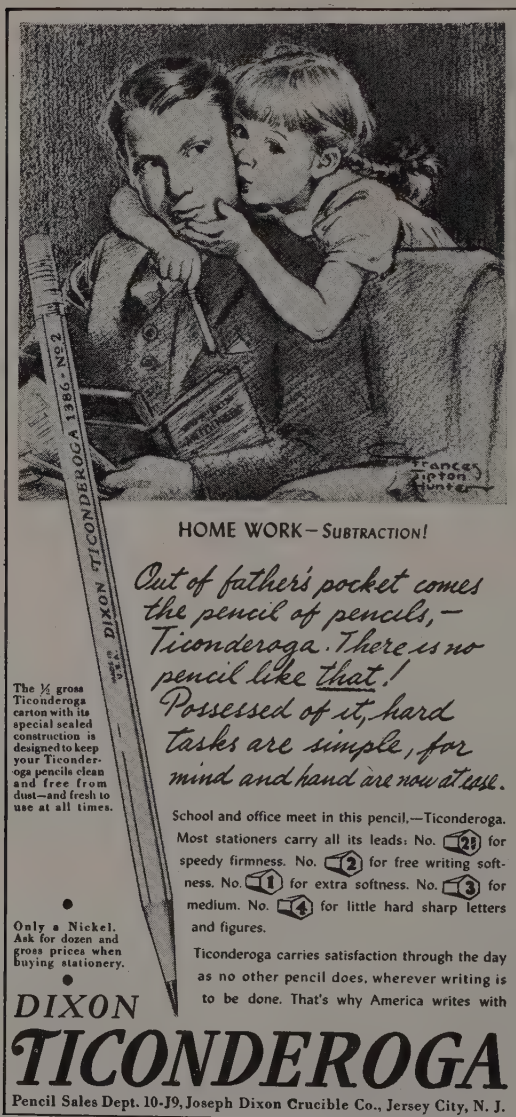 Frances
Tipton
Hunter
DIXON TICONDEROGA 1386 - No 2
MADE IN
U.S.A.
HOME WORK — SUBTRACTION!
Out of father's pocket comes
the pencil of pencils,—
Ticonderoga. There is no
pencil like that!
Possessed of it, hard
tasks are simple, for
mind and hand are now at ease.
The ½ gross
Ticonderoga
carton with its
special sealed
construction is
designed to keep
your Ticonder-
oga pencils clean
and free from
dust—and fresh to
use at all times.
School and office meet in this pencil,—Ticonderoga.
Most stationers carry all its leads: No. for
speedy firmness. No. 2 for free writing soft-
ness. No. 1 for extra softness. No. 3 for
medium. No. 4 for little hard sharp letters
and figures.
Only a Nickel.
Ask for dozen and
gross prices when
buying stationery.
Ticonderoga carries satisfaction through the day
as no other pencil does, wherever writing is
to be done. That's why America writes with
DIXON
TICONDEROGA
Pencil Sales Dept. 10-J9, Joseph Dixon Crucible Co., Jersey City, N. J.